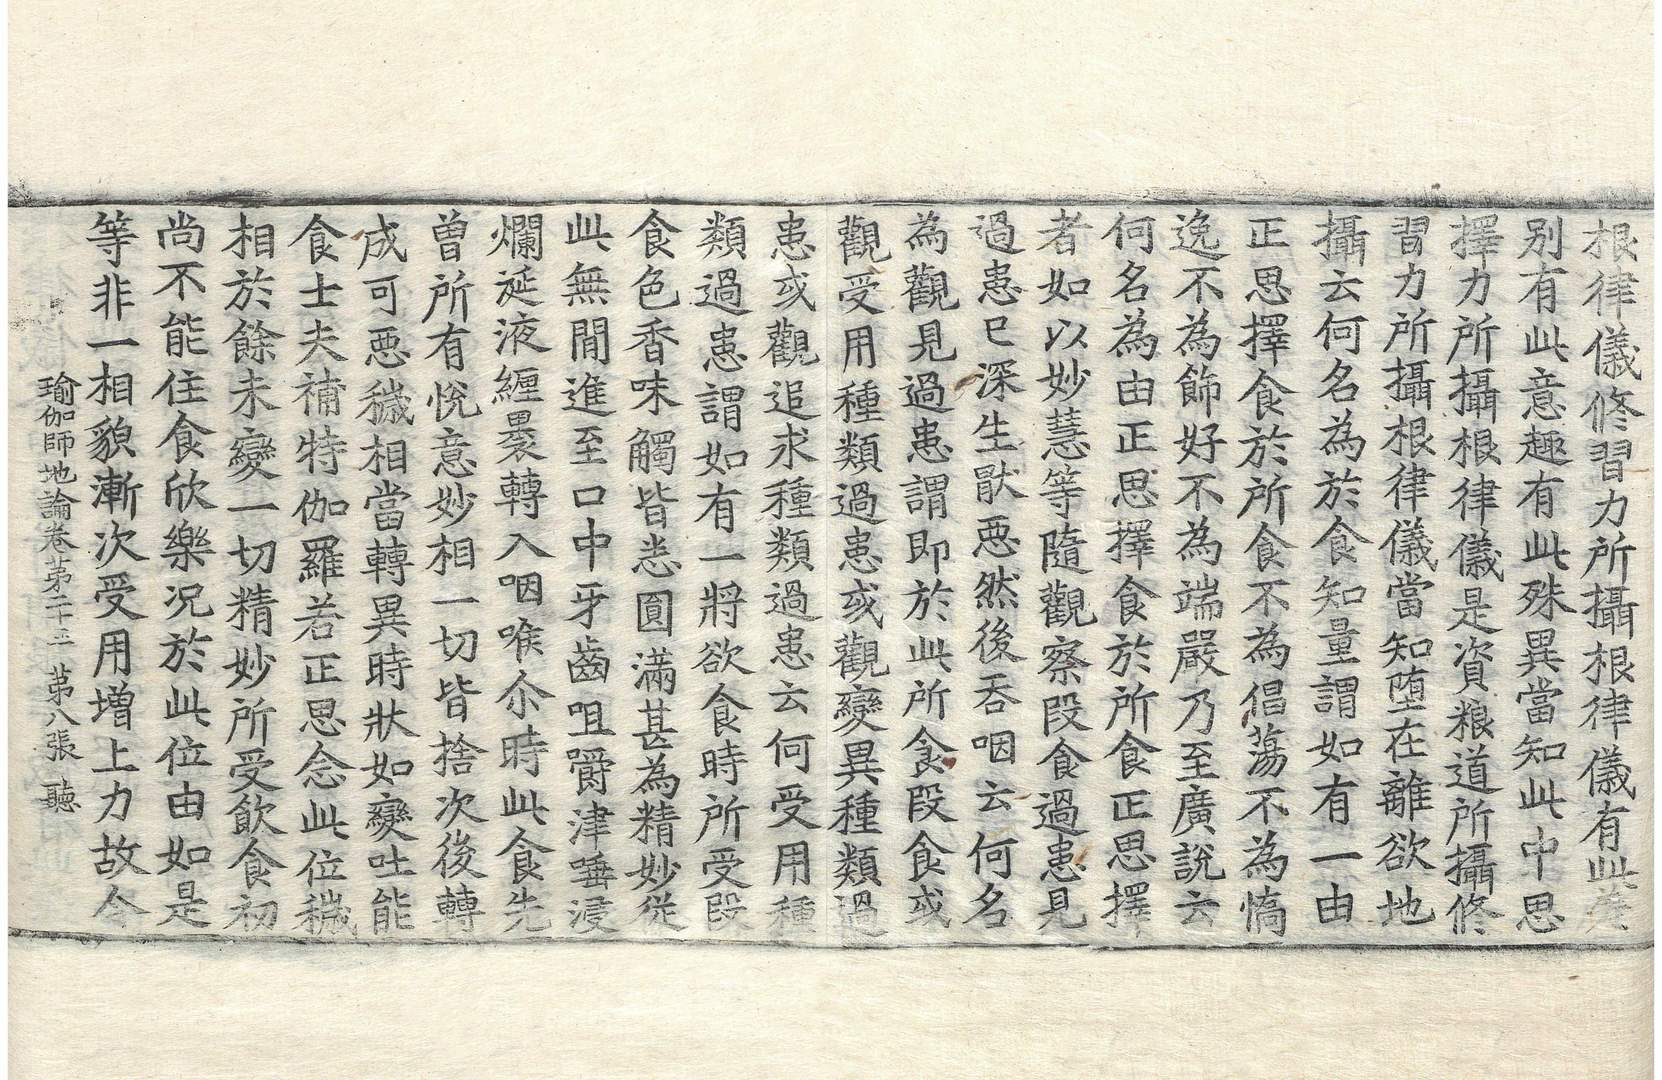 根律儀修習力所攝根律儀有此差
別有此意趣有此殊異當知此中思
擇力所攝根律儀是資粮道所攝修
習力所攝根律儀當知墮在離欲地
攝云何名為於食知量謂如有一由
正思擇食於所食不為倡蕩不為憍
逸不為飾好不為端嚴乃至廣說云
何名為由正思擇食於所食正思擇
者如以妙慧等隨觀察段食過患見
過患已深生猒惡然後吞咽云何名
為觀見過患謂即於此所食段食或
觀受用種類過患或觀變異種類過
患或觀追求種類過患云何受用種
類過患謂如有一將欲食時所受段
食色香味觸皆悉圓滿甚為精妙從
此無間進至口中牙齒咀嚼津唾浸
爛涎液纏褁轉入咽喉尒時此食先
曾所有悅意妙相一切皆捨次後轉
成可惡穢相當轉異時狀如變吐能
食士夫補特伽羅若正思念此位穢
相於餘未變一切精妙所受飲食初
尚不能住食欣樂况於此位由如是
等非一相貌漸次受用增上力故令
瑜伽師地論卷苐二十三 苐八張 聽